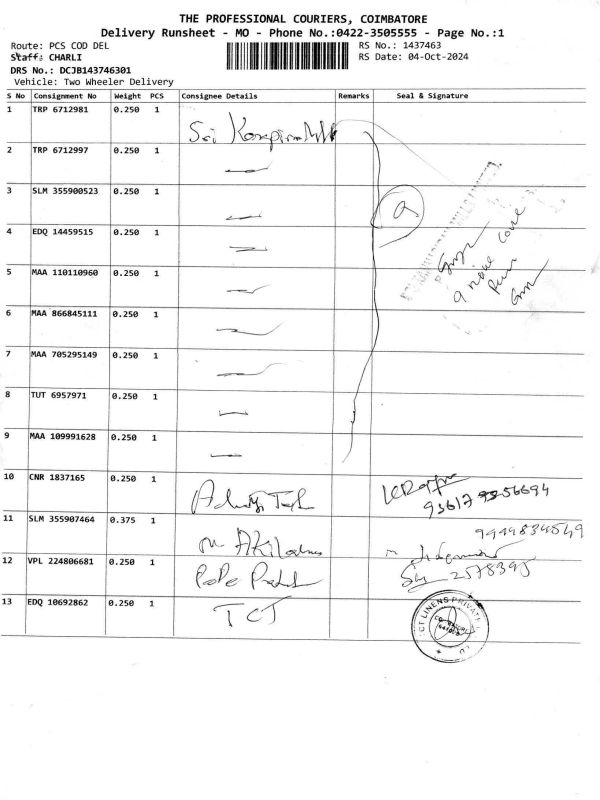 THE PROFESSIONAL COURIERS, COIMBATORE
Delivery Runsheet - MO - Phone No.:0422-3505555 - Page No.:1
Route: PCS COD DEL
RS No.: 1437463
Staff: CHARLI
RS Date: 04-Oct-2024
DRS No.: DCJB143746301
Vehicle: Two Wheeler Delivery
S No Consignment No Weight PCS Consignee Details Remarks Seal & Signature
1 TRP 6712981 0.250 1 Sri
2 TRP 6712997 0.250 1
3 SLM 355900523 0.250 1
9
4 EDQ 14459515 0.250 1
5 MAA 110110960 0.250 1
9
6 MAA 866845111 0.250 1
7 MAA 705295149 0.250 1
8 TUT 6957971 0.250 1
9 MAA 109991628 0.250 1
10 CNR 1837165 0.250 1
11 SLM 355907464 0.375 1 M
9944834549
12 VPL 224806681 0.250 1
2578395
13 EDQ 10692862 0.250 1 TCT
CT LINENS PRIVATE